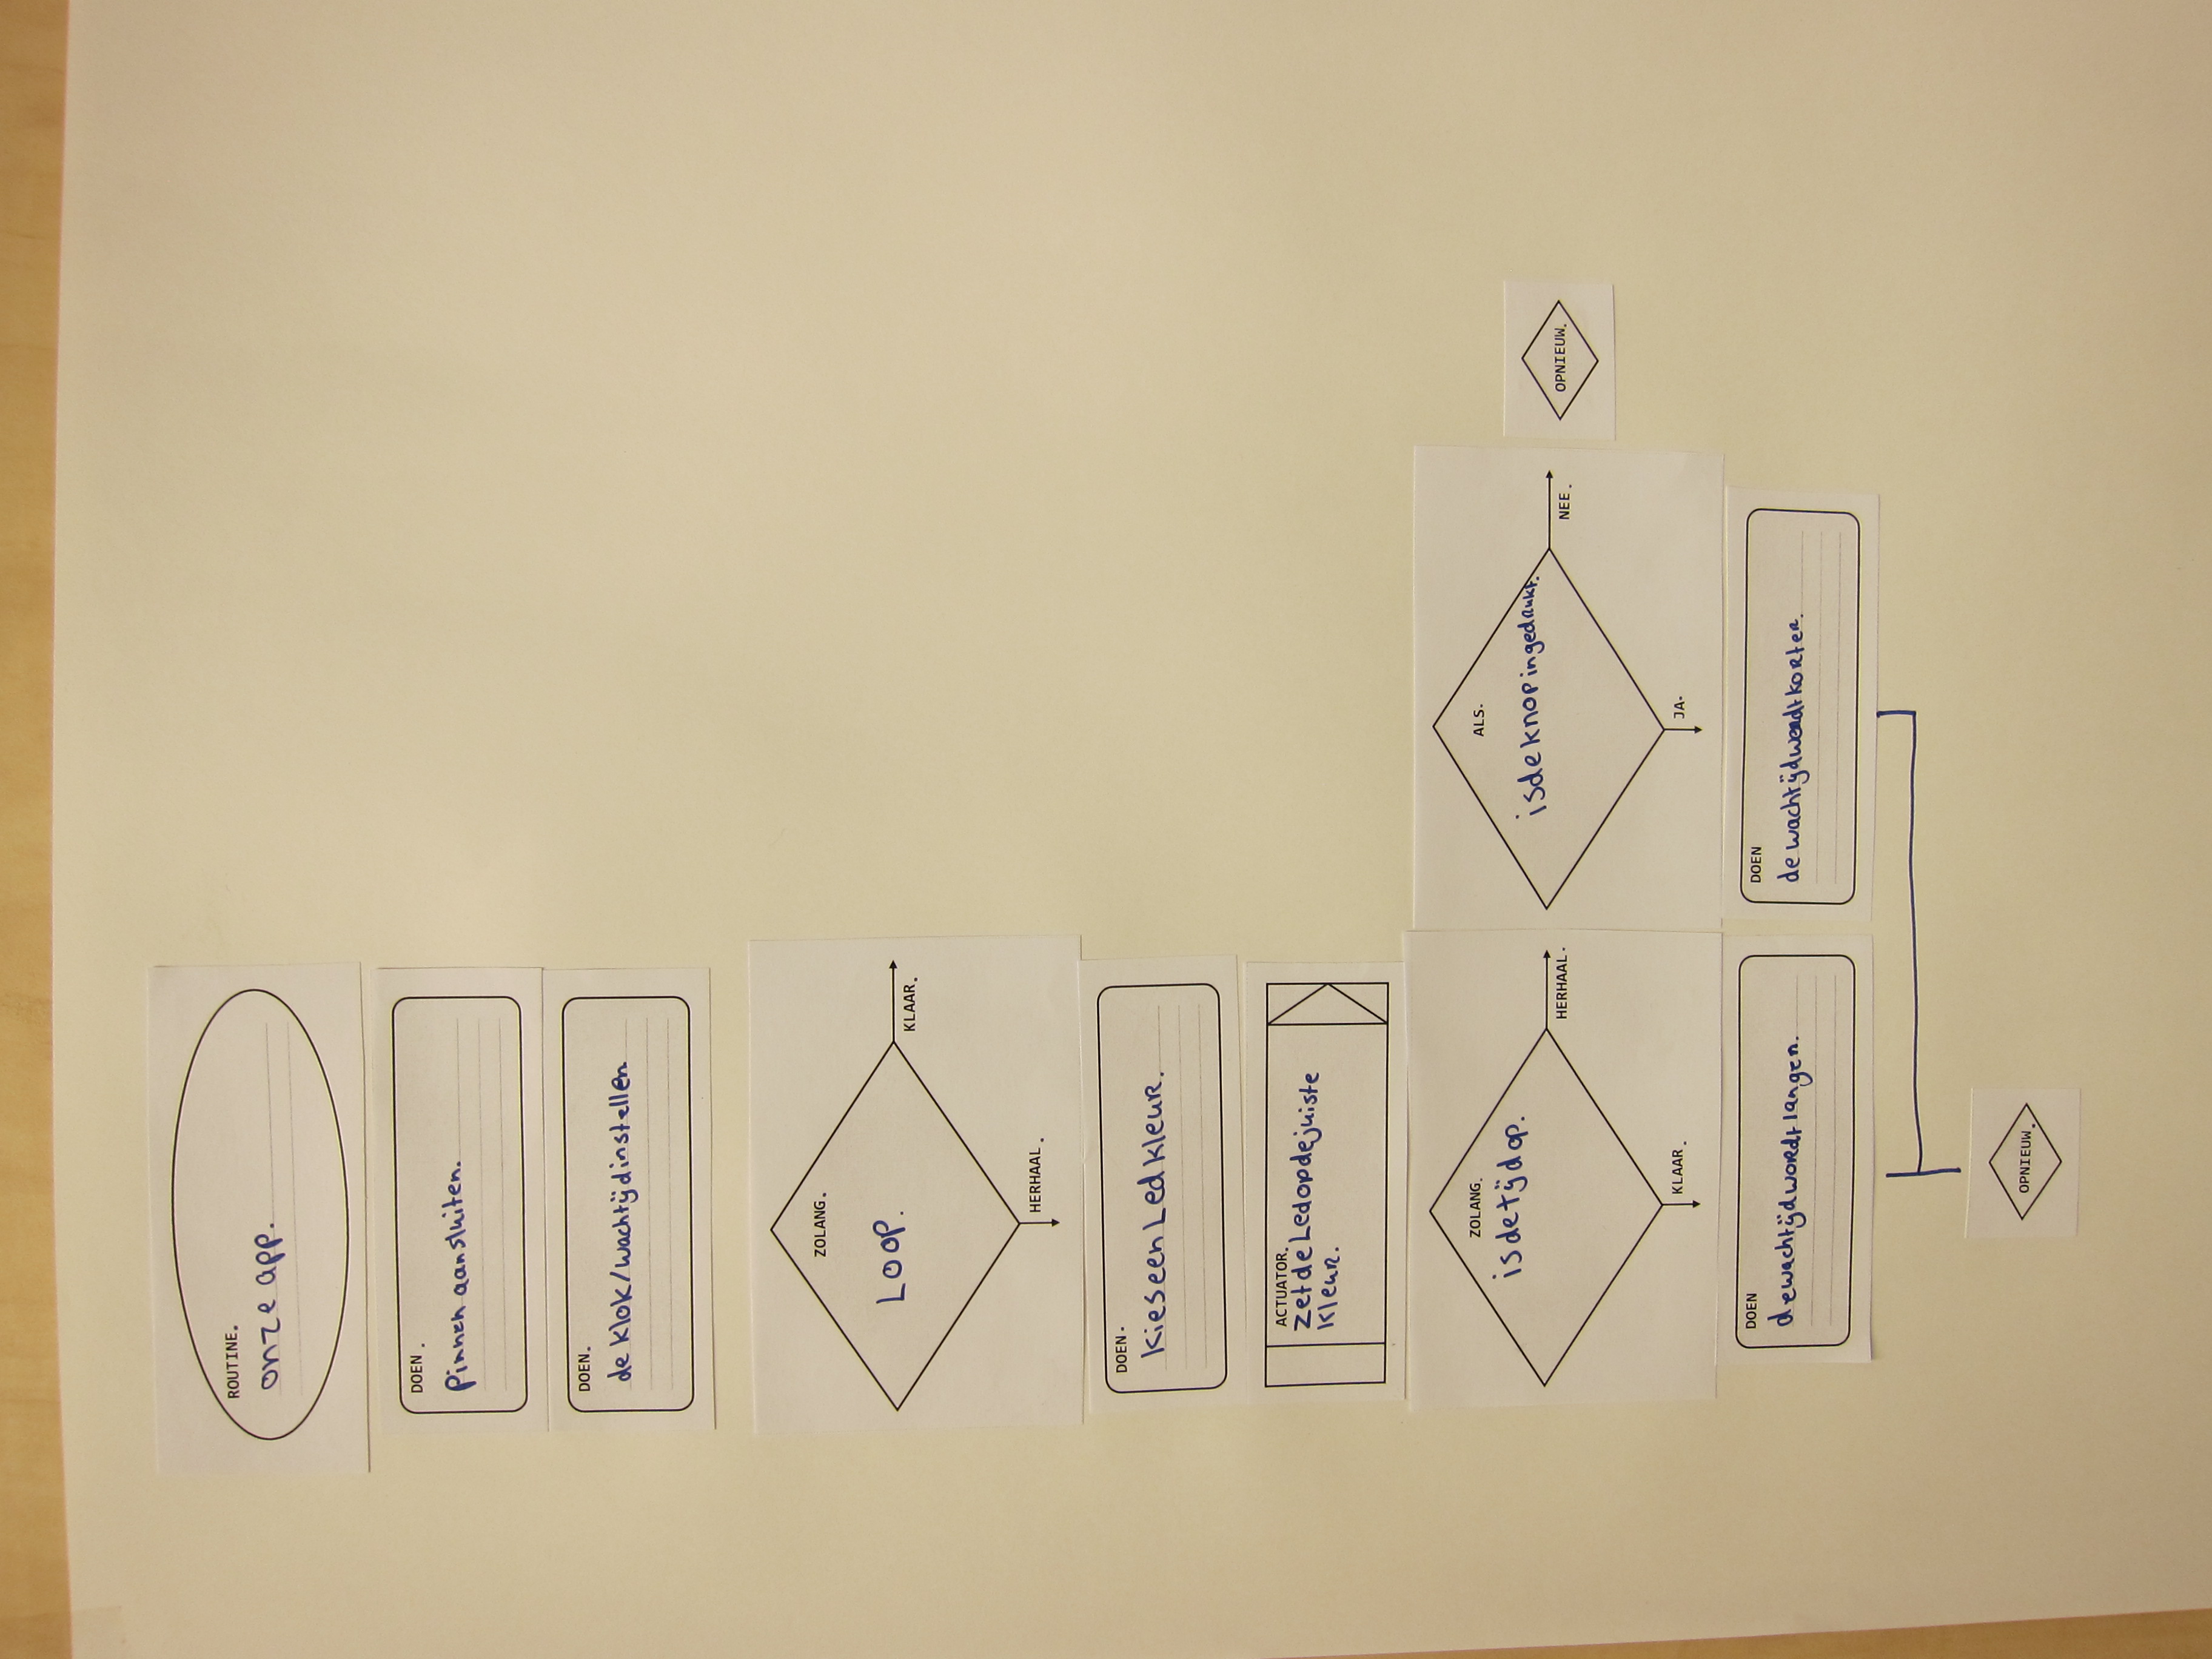 ROUTINE.
onze app.
DOEN.
Pinnen aansluiten.
DOEN.
de klok/wachtijdinstellen
ZOLANG.
Loop.
KLAAR.
HERHAAL.
DOEN.
kieseen Led kleur.
ACTUATOR.
zetdeLedopdejuiste
kleur.
ZOLANG.
isdetijdop.
HERHAAL.
KLAAR.
ALS.
isdeknopingedrukt.
NEE.
JA.
OPNIEUW.
DOEN
dewachtijdwordtlanger.
DOEN
de wachtijdwordtkorter.
OPNIEUW.